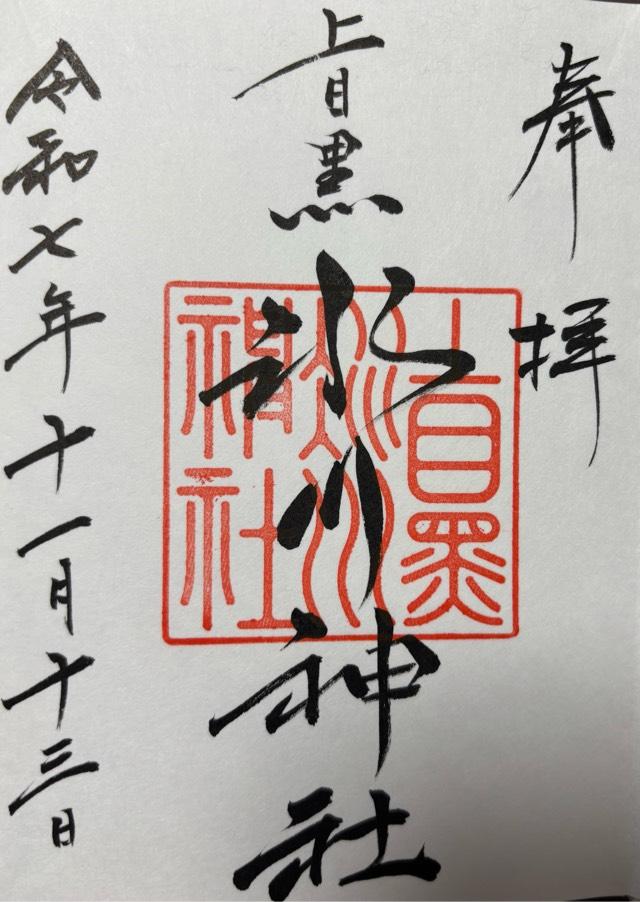 奉拝
上目黒
氷川神社
上目黒
氷川
神社
令和七年十一月十三日